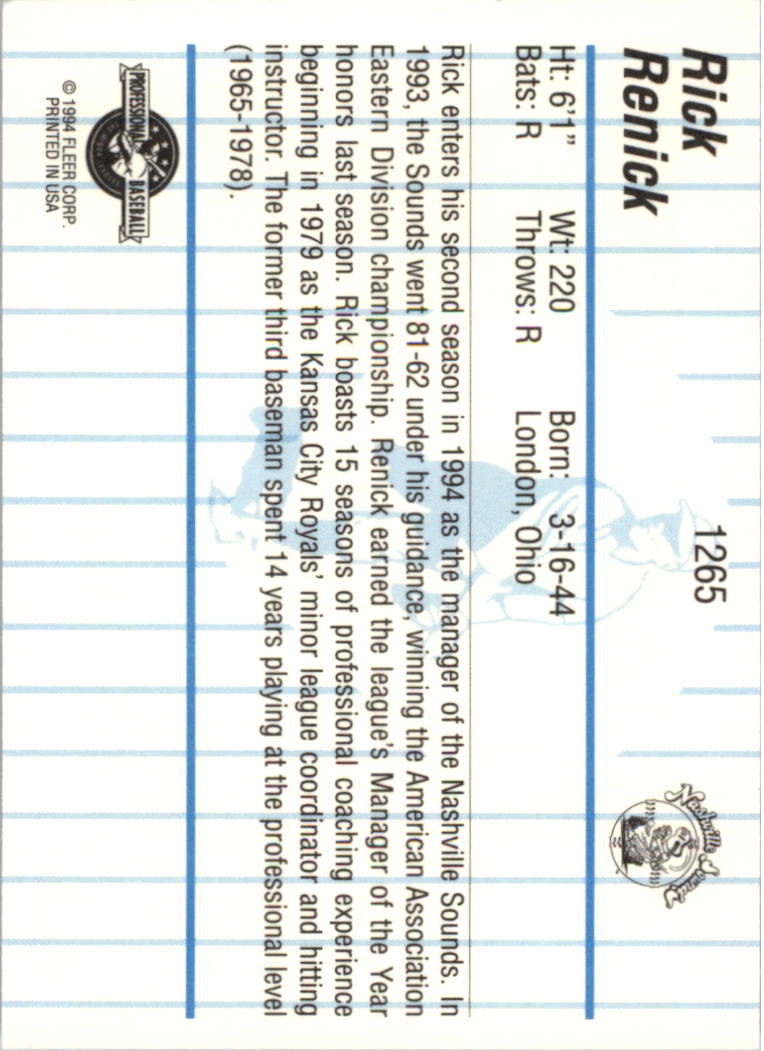 Rick
Renick
1265
Nashville Sounds
Ht: 6'1" Wt: 220 Born: 3-16-44
Bats: R Throws: R London, Ohio
Rick enters his second season in 1994 as the manager of the Nashville Sounds. In
1993, the Sounds went 81-62 under his guidance, winning the American Association
Eastern Division championship. Renick earned the league's Manager of the Year
honors last season. Rick boasts 15 seasons of professional coaching experience
beginning in 1979 as the Kansas City Royals' minor league coordinator and hitting
instructor. The former third baseman spent 14 years playing at the professional level
(1965-1978).
PROFESSIONAL BASEBALL
© 1994 FLEER CORP.
PRINTED IN USA